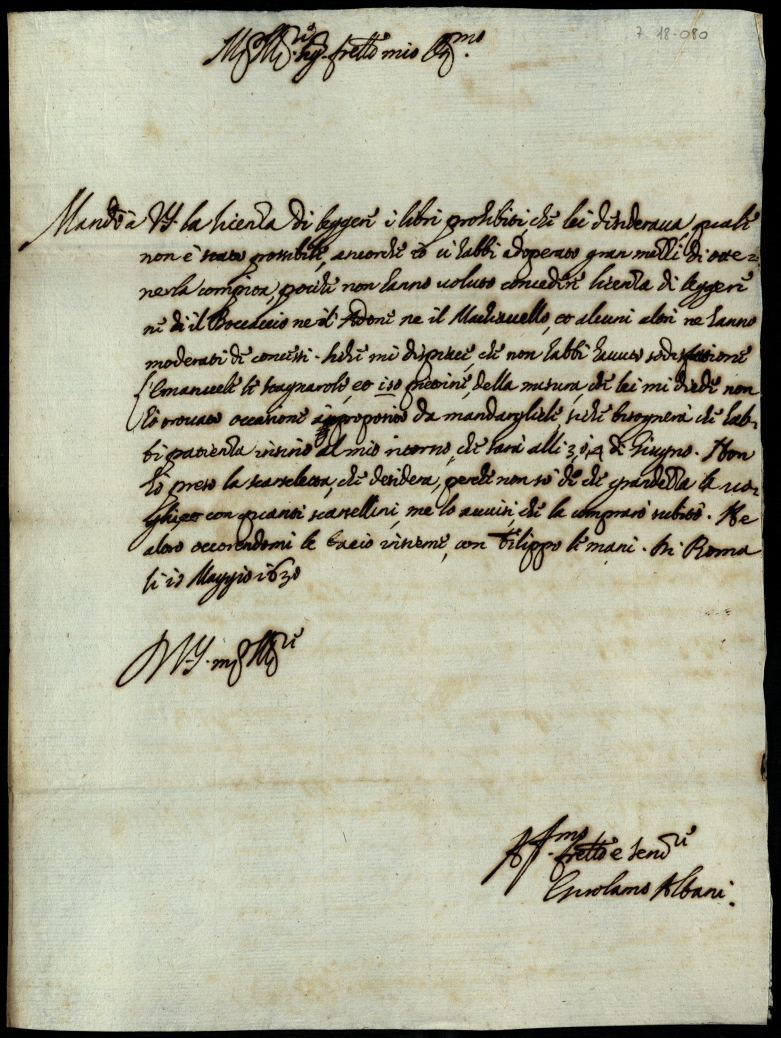 7-18-080
Mando à VS la licenza di leggere i libri prohibiti, che lei desideraua, quale
non è stato possibile, ancorche io ci habbi adoperato gran mezzi di otte=
nerla compita, poiche non hanno uoluto concedere licenza di leggere
ne il Boccaccio ne il Adone ne il Machiauello, et alcuni altri ne hanno
moderati di concessi. siche mi dispiace, che non habbi hauuto sodisfatione
Emanuele le scagnarole, et iso piccine, della misura, che lei mi diede non
ho trouato occasione approposito da mandargliele, siche bisognerà che hab=
bi patienza insino al mio ritorno, che sarà alli 3, o 4 di Giugno. Non
ho preso la scarseletta, che desidera, perche non so di che grandezza la uo=
glia, con quanti scarsellini, me lo auuisi, che la comprarò subito. Ne
altro occorendomi le bacio insieme, con Filippo le mani. Di Roma
li 10 Maggio 1630
Di VS. molto Ill.re
Aff.mo
fratello e Seru.re
Girolamo Albani.